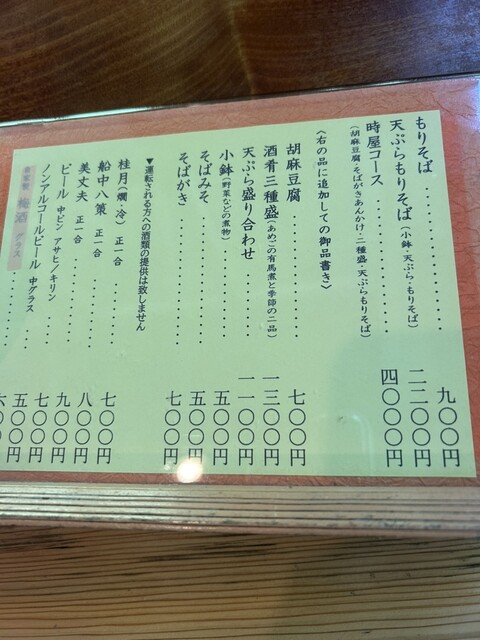 もりそば 九〇〇円
天ぷらもりそば (小鉢・天ぷら・もりそば) 二二〇〇円
時屋コース 四〇〇〇円
(胡麻豆腐・そばがきあんかけ・二種盛・天ぷらもりそば)
〈右の品に追加しての御品書き〉
胡麻豆腐 七〇〇円
酒肴三種盛 (あめごの有馬煮と季節の二品) 一三〇〇円
天ぷら盛り合わせ 一一〇〇円
小鉢 (野菜などの煮物) 五〇〇円
そばみそ 五〇〇円
そばがき 七〇〇円
▼運転される方への酒類の提供は致しません
桂月 (燗、冷) 正一合 七〇〇円
船中八策 正一合 八〇〇円
美丈夫 正一合 九〇〇円
ビール 中ビン アサヒ/キリン 七〇〇円
ノンアルコールビール 中グラス 五〇〇円
自家製 梅酒 グラス 六〇〇